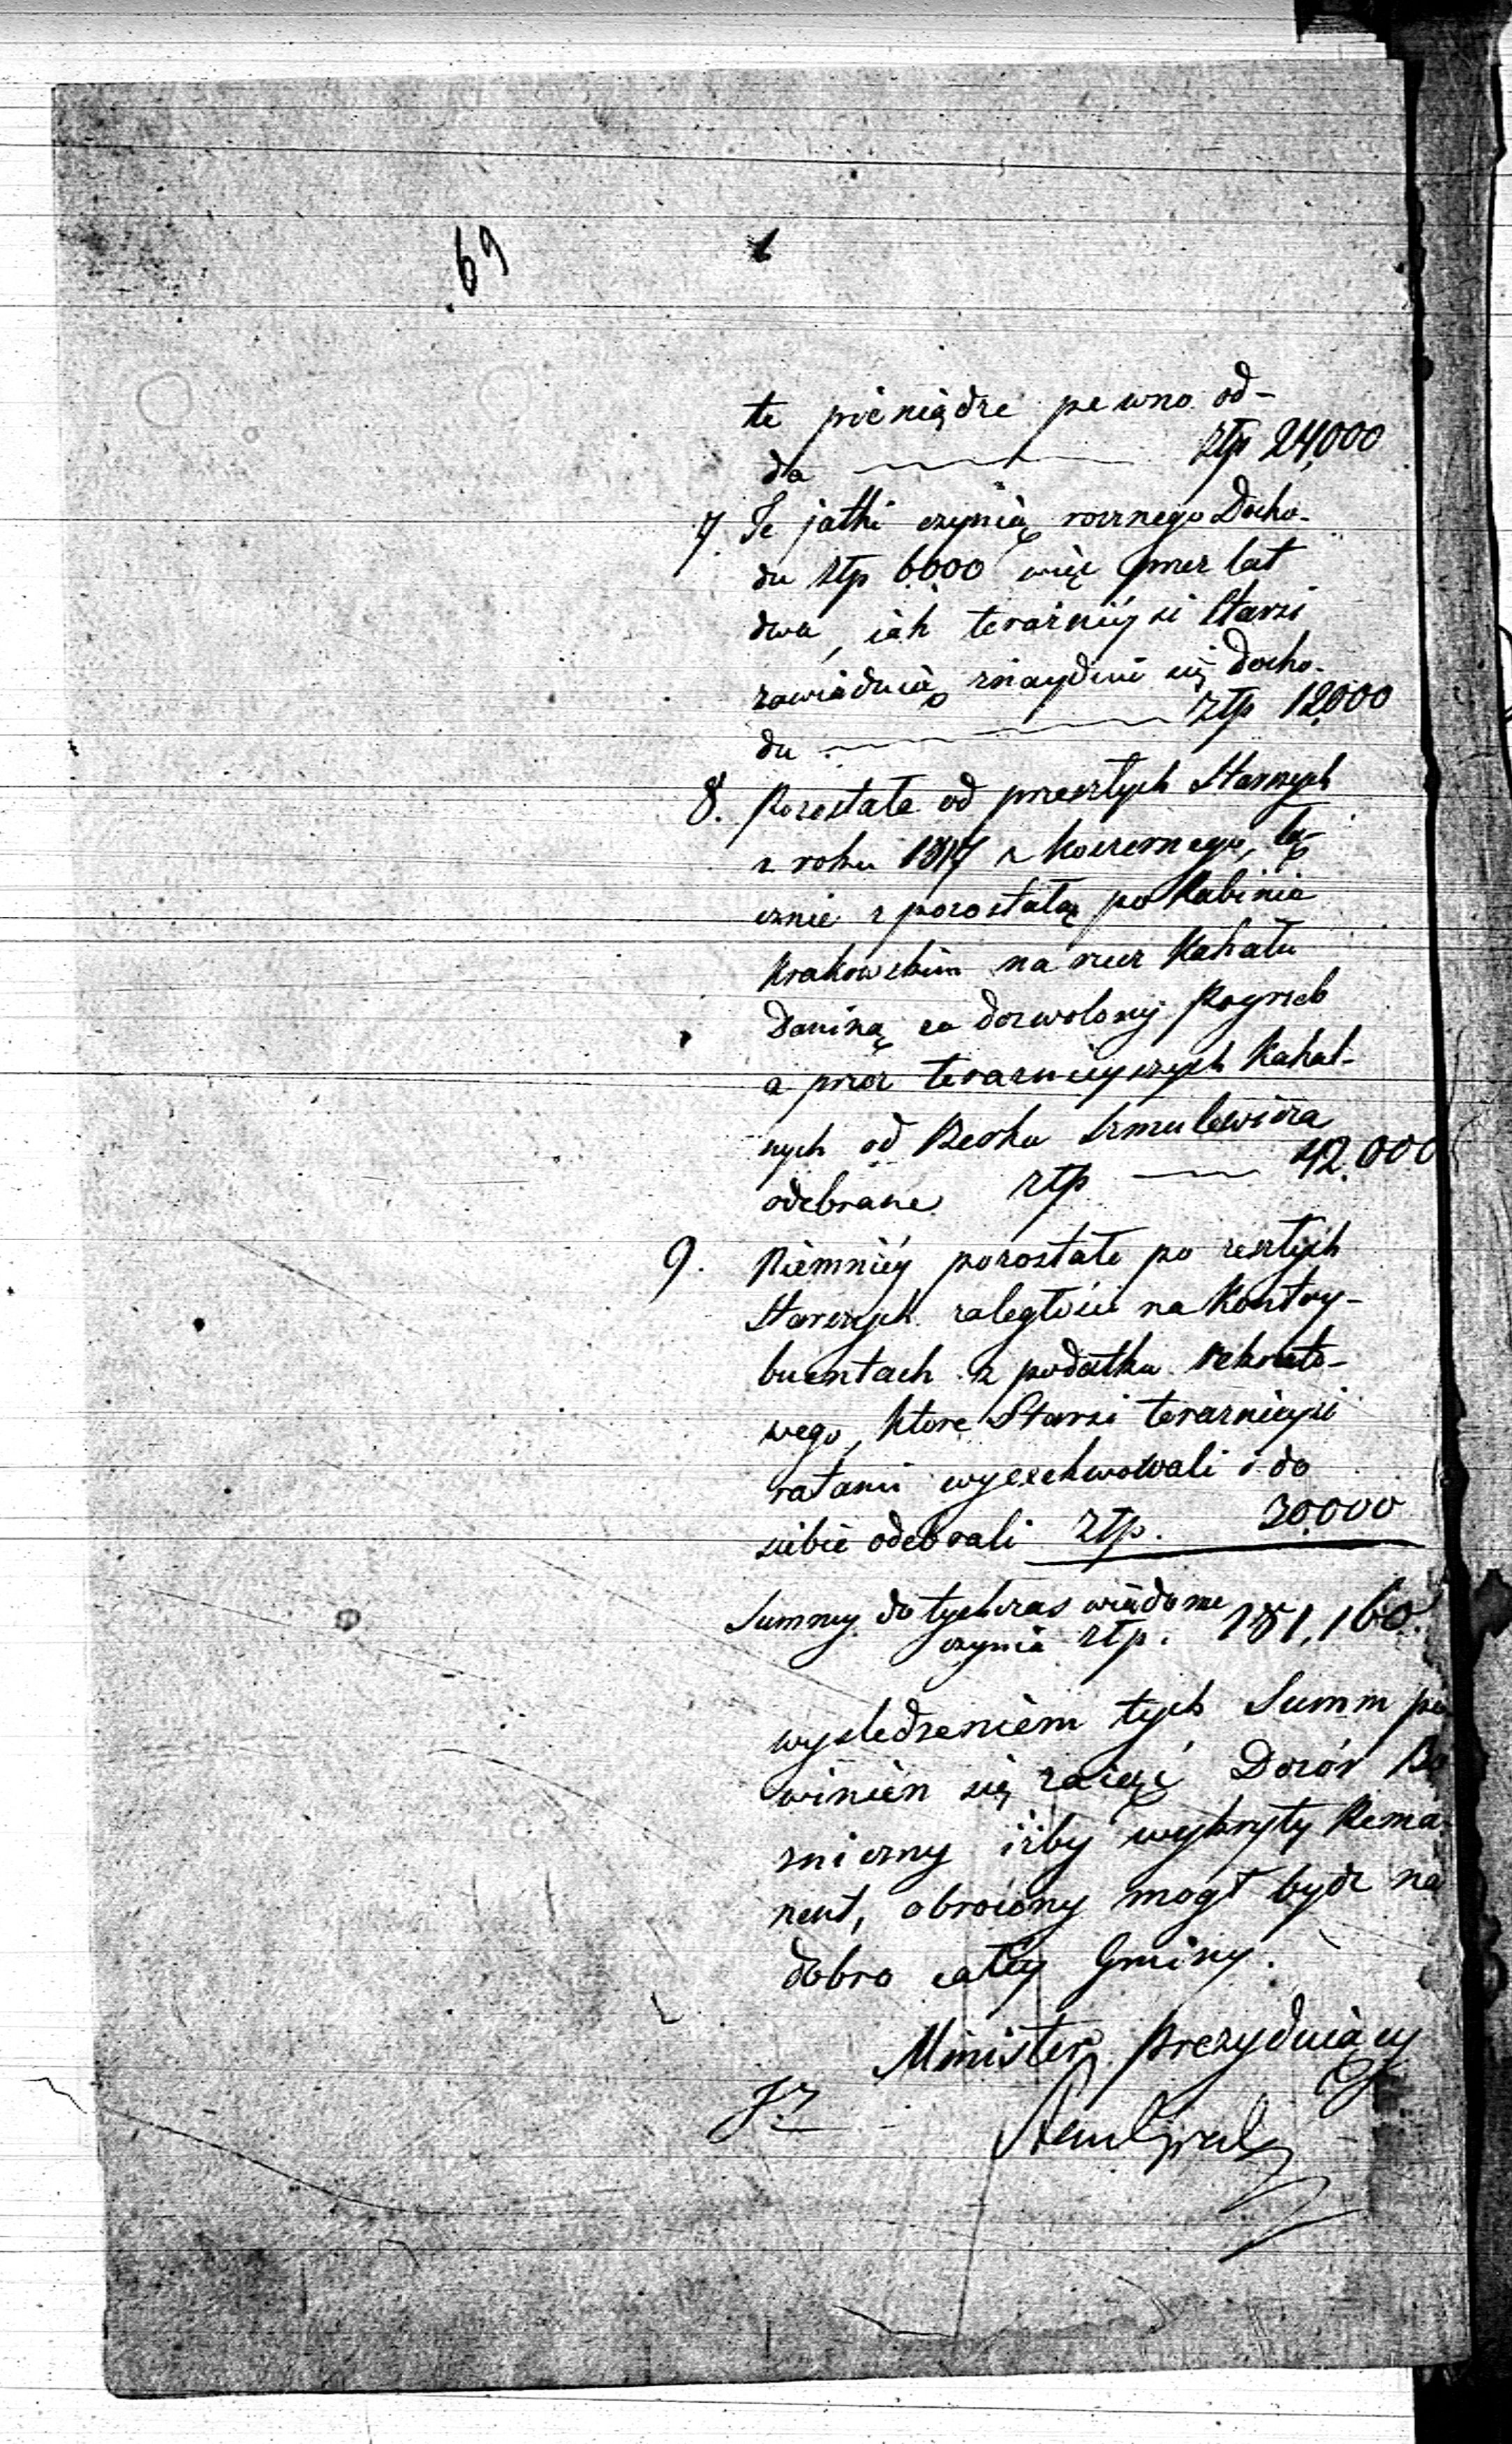 69
te pieniądze pewno od-
da ztp 24,000
7. Te jatki czynią rocznego Docho-
du ztp 6000 więc przez lat
dwa, iak teraźnieysi Starsi
zawiaduią znaydzie się Docho-
du ztp 12,000
8. Pozostałe od przeszłych Starszych
z roku 1817 z koszernego, łą-
cznie z pozostałą po Rabinie
Krakowskim na rzecz Kahału
Daniną za dozwolony Pogrzeb
a przez teraznieyszych Kahal-
nych od Berka Szmulewicza
odebrane ztp 42,000
9. Niemniéy pozostałe po zeszłych
Starszych zaległości na Kontry-
buentach z podatku rekruto-
wego, które Starsi teraznieysi
ratami wyexekwowali i do
siebie odebrali ztp. 30,000
Summy dotychczas wiadome
czynią ztp. 181,160.
wysledzeniem tych Summ po
winien się zaiąć Dozór Bo
zniczny iżby wykryty Rema-
nent, obrócony mogł bydz na
dobro całey Gminy.
Minister Prezyduiący